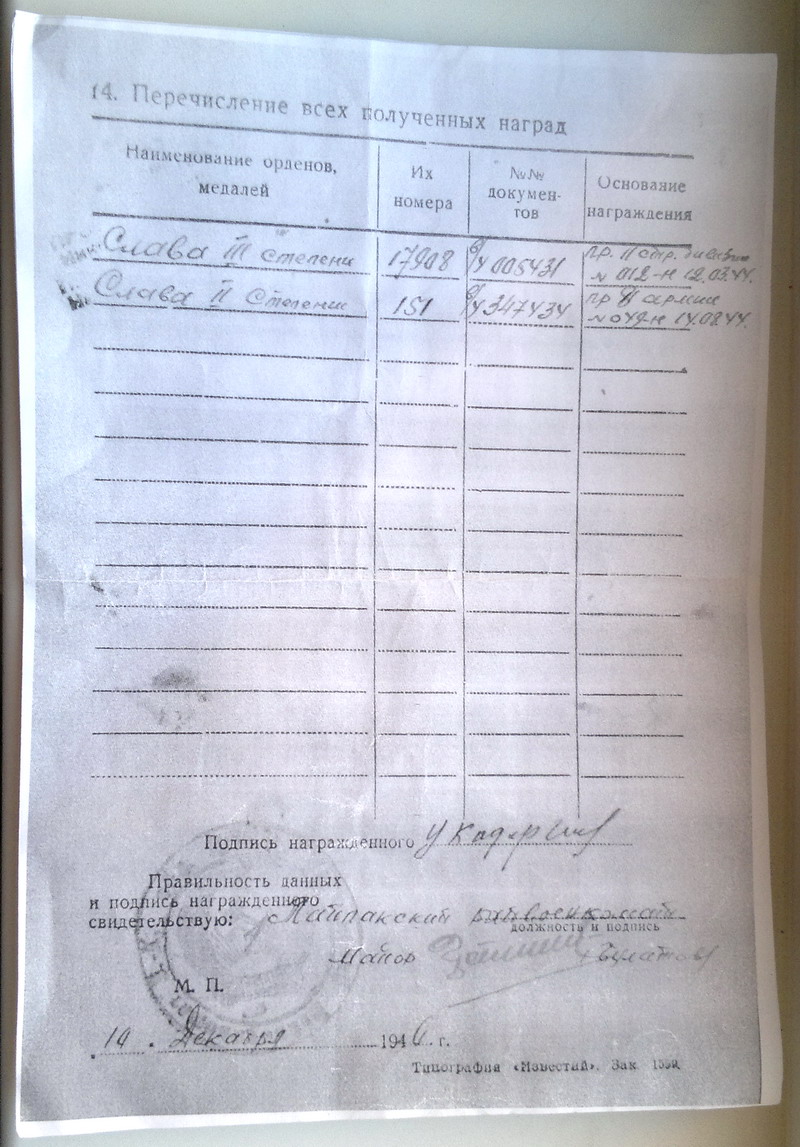 14. Перечисление всех полученных наград
Наименование орденов, медалей
Их номера
№№ документов
Основание награждения
Слава III степени 17908 005431 пр. 11 стр. дивизии
№ 012-н 12.03.44.
Слава II Степени 151 347434 пр армии
№ 049-н 14.08.44.
Подпись награжденного
Правильность данных
и подпись награжденного
свидетельствую:
должность и подпись
Майор
М. П.
Декабря 1946 г.
Типография «Известий». Зак.